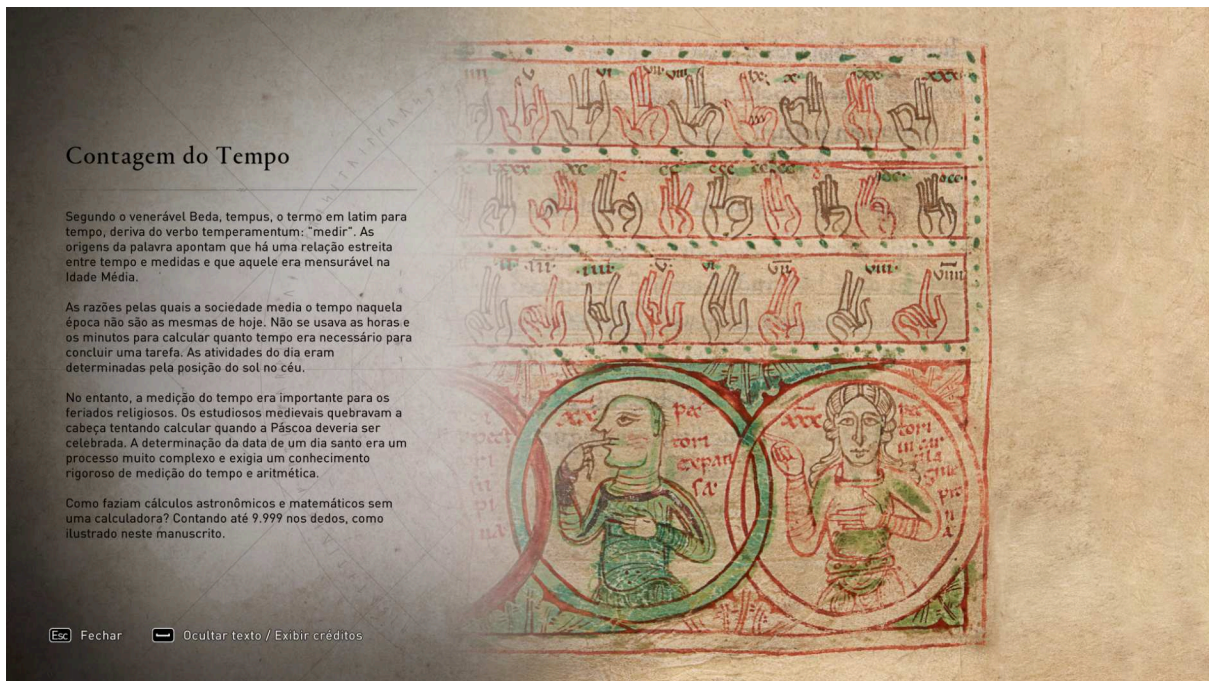 Contagem do Tempo
Segundo o venerável Beda, tempus, o termo em latim para
tempo, deriva do verbo temperamentum: "medir". As
origens da palavra apontam que há uma relação estreita
entre tempo e medidas e que aquele era mensurável na
Idade Média.
As razões pelas quais a sociedade media o tempo naquela
época não são as mesmas de hoje. Não se usava as horas e
os minutos para calcular quanto tempo era necessário para
concluir uma tarefa. As atividades do dia eram
determinadas pela posição do sol no céu.
No entanto, a medição do tempo era importante para os
feriados religiosos. Os estudiosos medievais quebravam a
cabeça tentando calcular quando a Páscoa deveria ser
celebrada. A determinação da data de um dia santo era um
processo muito complexo e exigia um conhecimento
rigoroso de medição do tempo e aritmética.
Como faziam cálculos astronômicos e matemáticos sem
uma calculadora? Contando até 9.999 nos dedos, como
ilustrado neste manuscrito.
Esc Fechar Ocultar texto / Exibir créditos
pec
tori
expan
sa